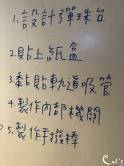 1.設計彈珠台
2.貼上紙盒
3.黏貼軌道吸管
4.製作內部機關
5.製作手撥棒